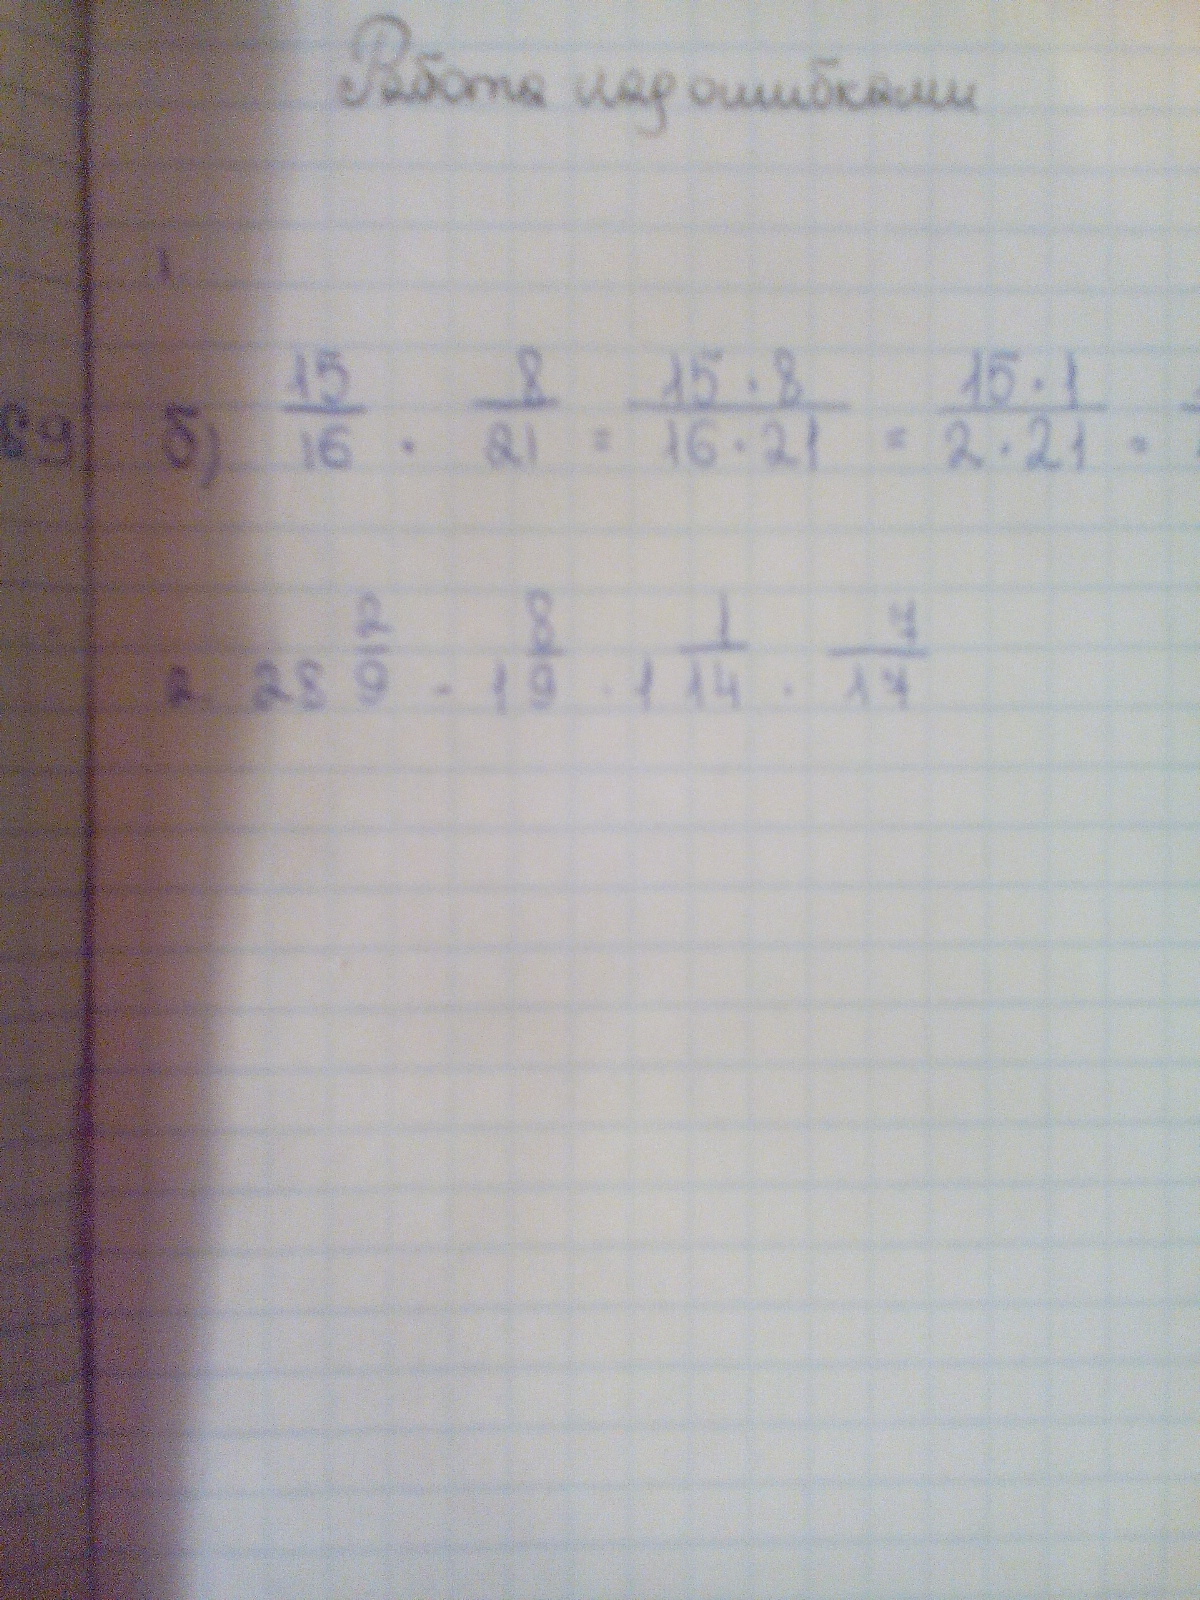 Работа над ошибками
1
б) 15/16 · 8/21 = 15·8/16·21 = 15·1/2·21 =
2 28 2/9 - 1 8/9 · 1 1/14 · 7/17